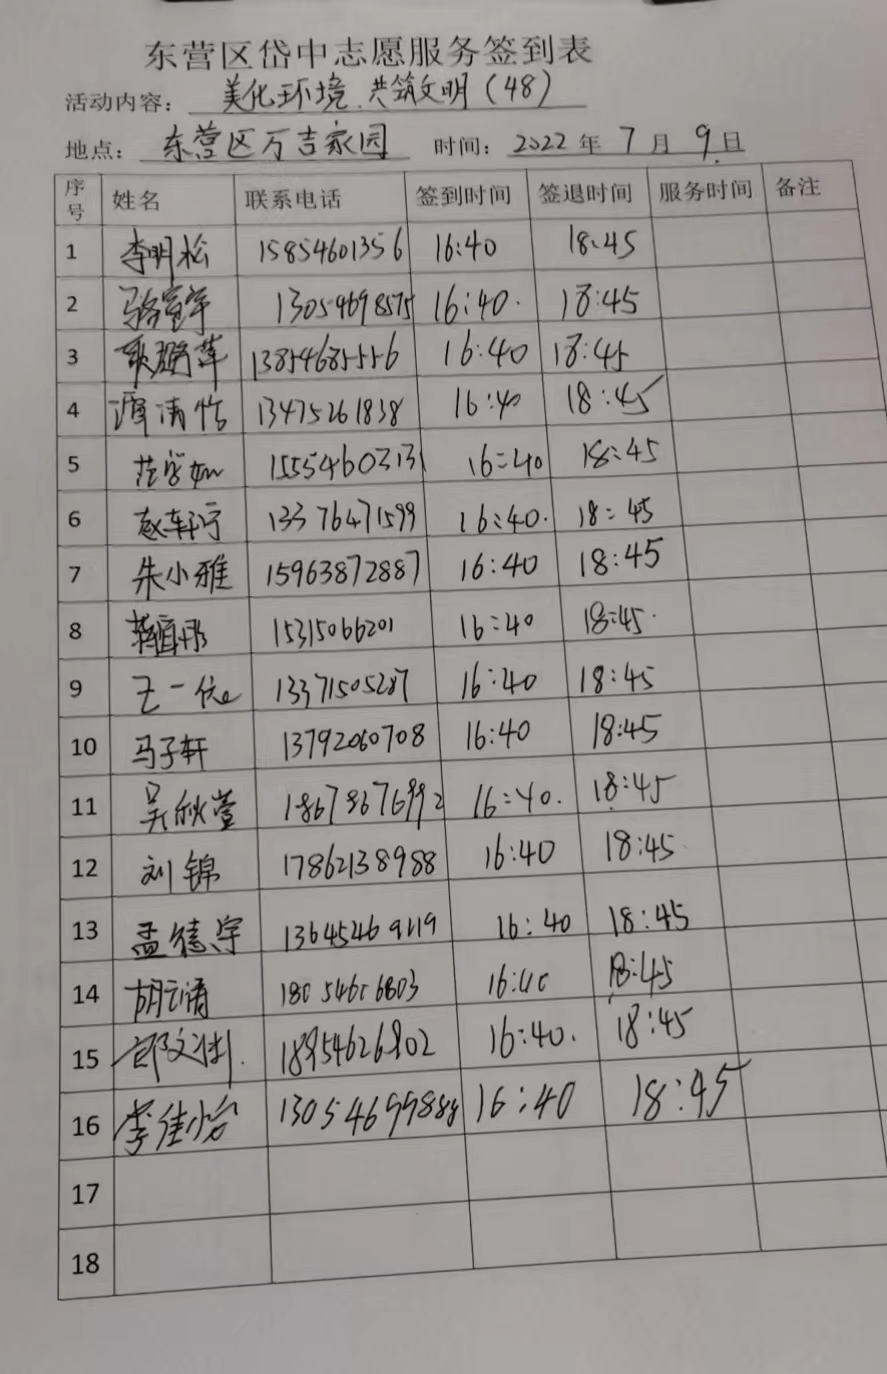 东营区岱中志愿服务签到表
活动内容: 美化环境.共筑文明(48)
地点: 东营区万吉家园 时间: 2022年7月9日
序号 姓名 联系电话 签到时间 签退时间 服务时间 备注
1 李明松 15854601356 16:40 18:45
2 13054698575 16:40. 18:45
3 13854685556 16:40 18:45
4 谭清怡 13475261838 16:40 18:45
5 15554603131 16:40 18:45
6 赵轩宁 13376471599 16:40. 18:45
7 朱小雅 15963872887 16:40 18:45
8 15315066201 16:40 18:45.
9 王一 13371505287 16:40 18:45
10 马子轩 13792060708 16:40 18:45
11 吴秋萱 18678676992 16:40. 18:45
12 刘锦 17862138988 16:40 18:45
13 孟德宇 13645469119 16:40 18:45
14 16:40 18:45
15 18954626902 16:40. 18:45
16 李佳怡 13054699888 16:40 18:45
17
18